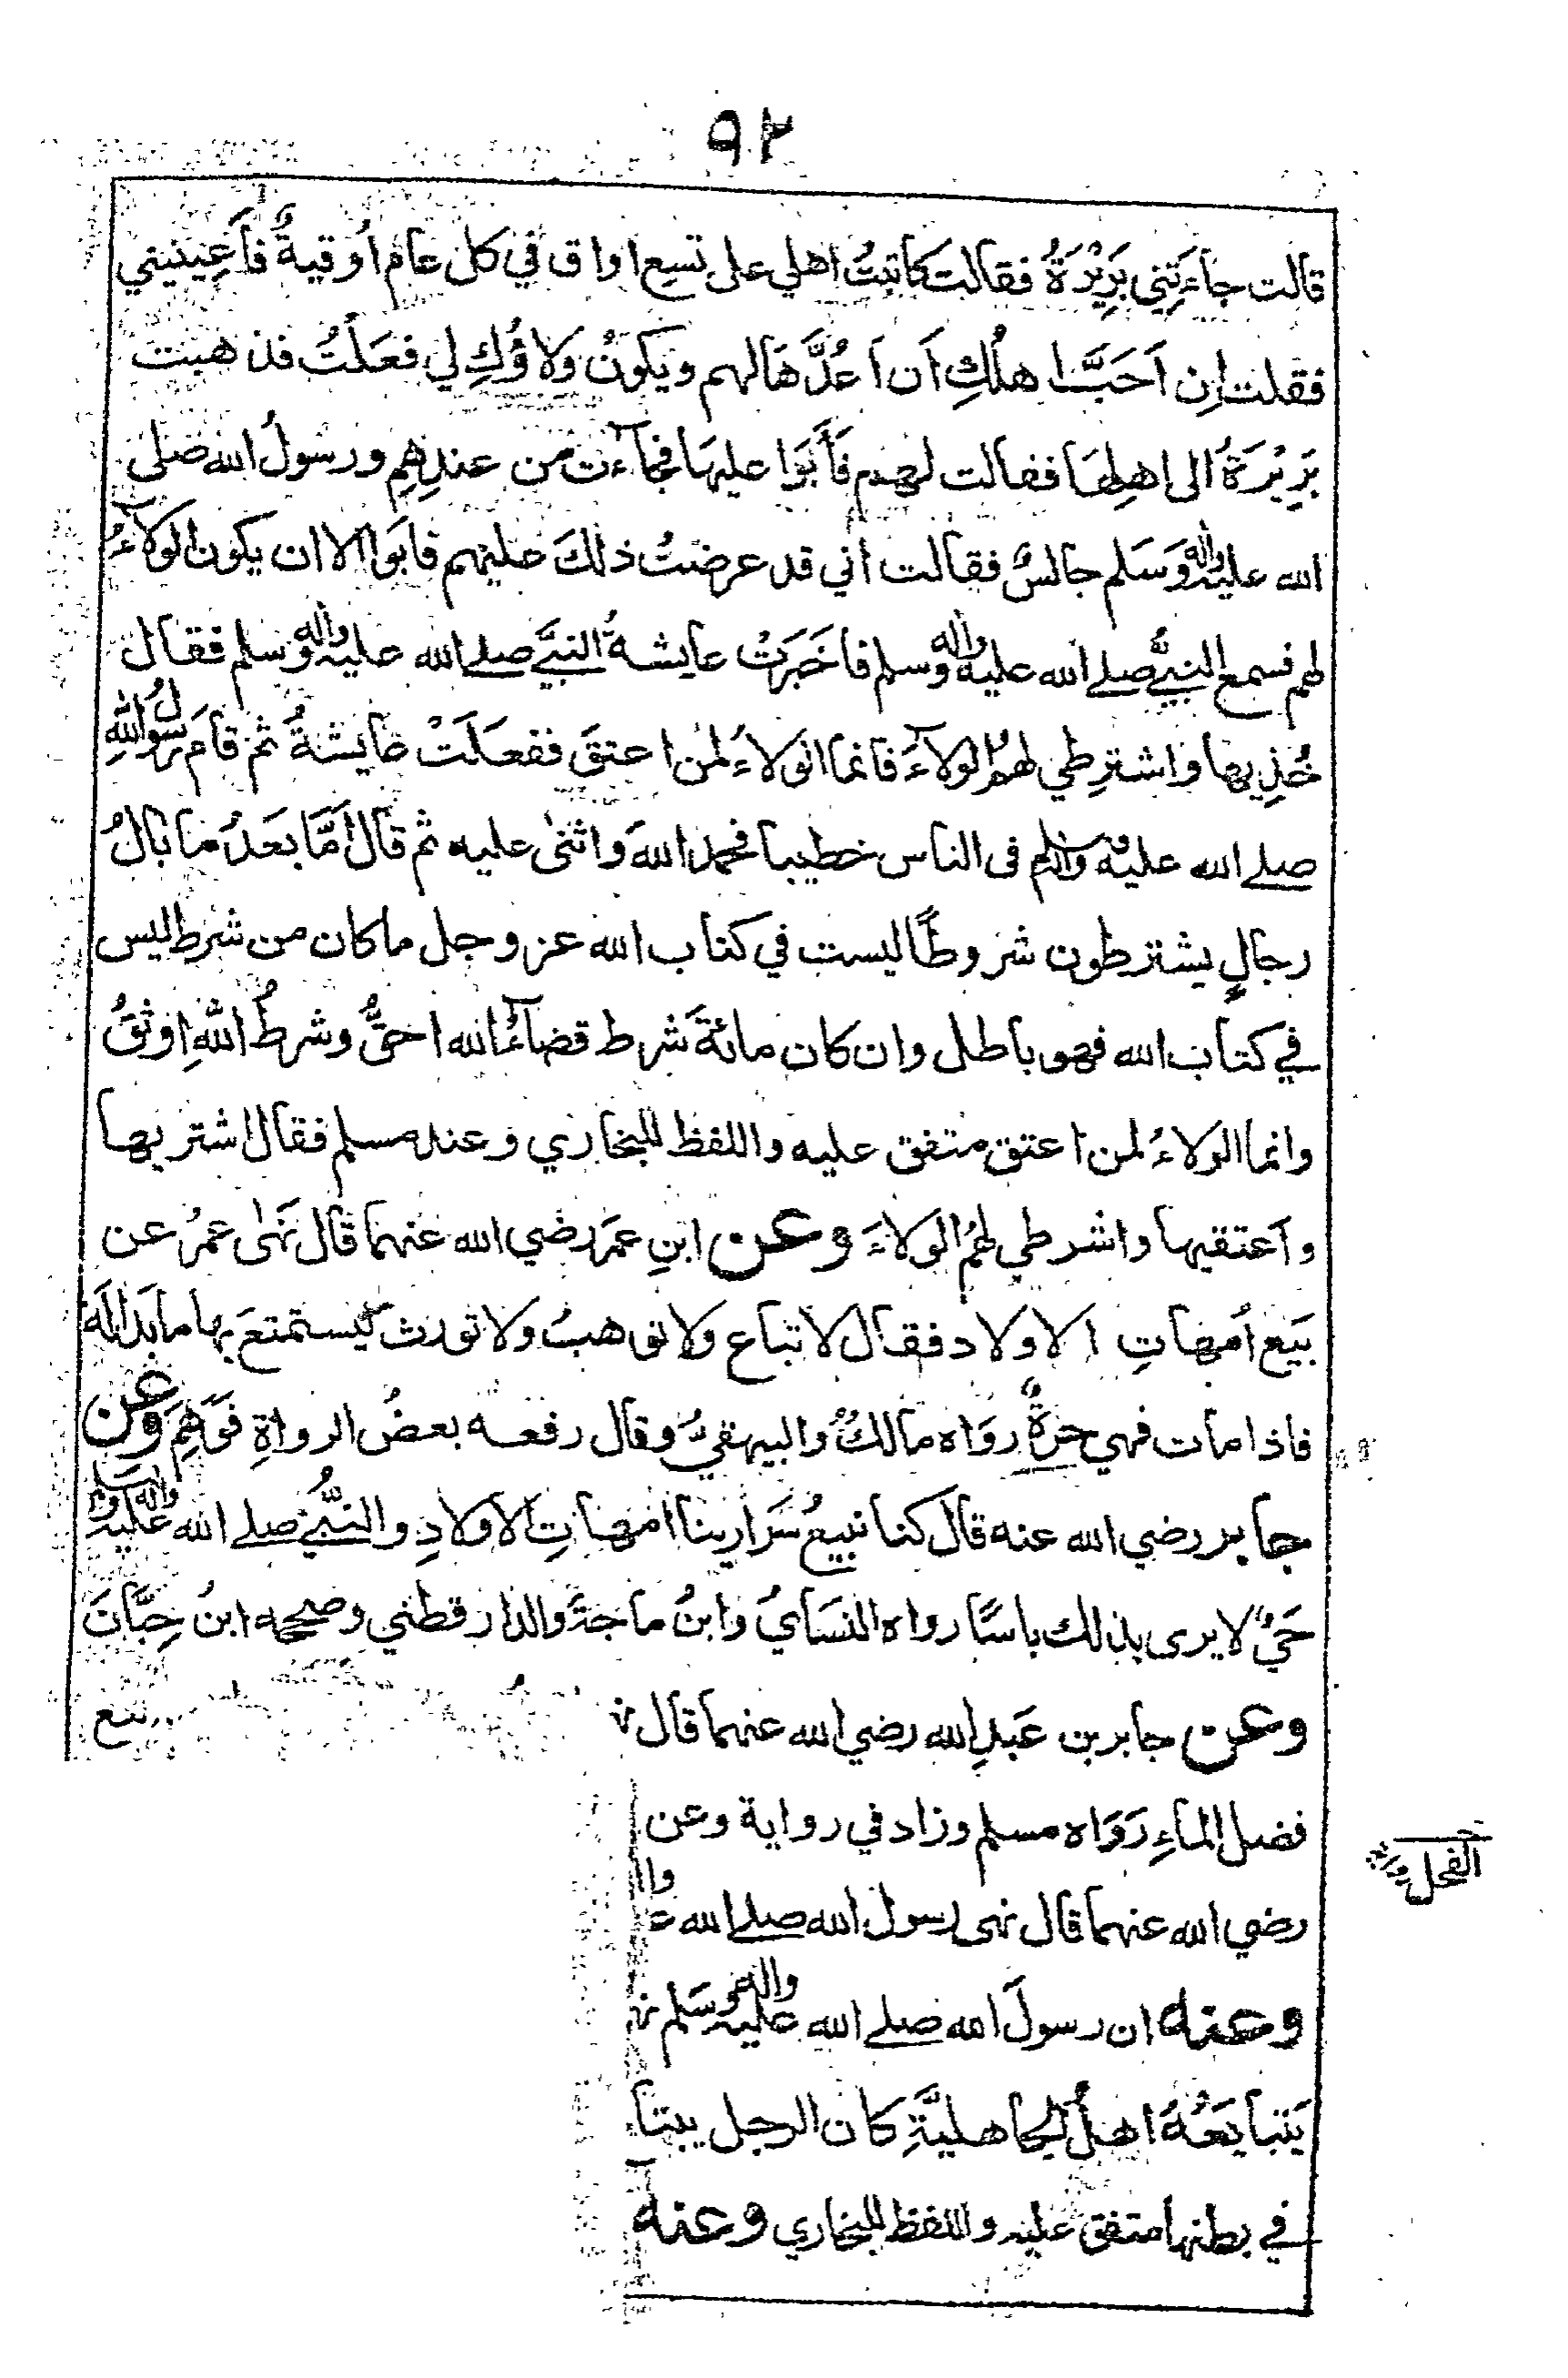 ٩٢
قالت جاءَتني بَرِيْرَةُ فقالت كاتبتُ اهلي على تسع اواق في كل عام اُوقيةٌ فاَعِينيني
فقلت اِن اَحَبَّ اهلُكِ اَن اَعُدَّهَا لهم ويكونُ ولاؤُكِ لي فعَلتُ فذهبت
بَرِيْرَةُ الى اهلِها فقالت لهم فَاَبَوا عليهَا فجاءَت من عندِهِم ورسولُ الله صلى
الله عليه واله وَسَلم جالسٌ فقالت اني قد عرضتُ ذلكَ عليهم فابَوا الا ان يكون الولآءُ
لهم فسمع النبيُّ صلے الله عليه واله وسلم فاَخبَرَتْ عايشةُ النبيَّ صلے الله عليه واله وسلم فقال
خُذِيها واشترِطي لهمُ الولآءَ فانما الولاءُ لمن اعتقَ ففعلَتْ عايشةُ ثم قامَ رسولُ اللهِ
صلے الله عليه وسلم فى الناس خطيبا فحمد اللهَ واثنىٰ عليه ثم قال اَمَّا بعَدُ ما بالُ
رجالٍ يشترطون شروطًا ليست في كتاب الله عز وجل ما كان من شرط ليس
في كتاب الله فهو باطل وان كان مائةَ شرط قضاءُ الله احقُّ وشرطُ اللّٰهِ اوثقُ
وانما الولاءُ لمن اعتق متفق عليه واللفظ للبخاري وعند مسلم فقال اشتريها
واَعتقيها واشرطي لهمُ الولاءَ وعن ابنِ عمَر رضي الله عنهما قال نَهىٰ عمرُ عن
بَيَع اُمهاتِ الاولاد فقال لا تباع ولا توهبُ ولا تورث يستمتعَ بها ما بَدا لَهُ
فاذا مات فهي حرةٌ روَاه مالكٌ والبيهقيُّ وقال رفعه بعضُ الرواةِ فوَهِمَ وعن
جابر رضي الله عنه قال كنا نبيعُ سَرَارينا امهاتِ الاولادِ والنبُّي صلے الله عليه واله وسلم
حَيٌّ لا يرى بذلك باسًا رواه النسَايُ وابنُ ماجةَ والدارقطني وصححه ابنُ حِبَّانَ
وعن جابر بن عَبدِ الله رضي الله عنهما قال بيع
فضل الماءِ رَوَاه مسلم وزاد في رواية وعن
الفحل
رضي الله عنهما قال نهى رسول الله صلے الله
وعنه ان رسولَ الله صلے الله عليه واله وسَلم
يَتبايَعُهُ اهلُ الجاهليَّةِ كان الرجل يبتا
في بطنها متفق عليه واللفظ للبخاري وعنه